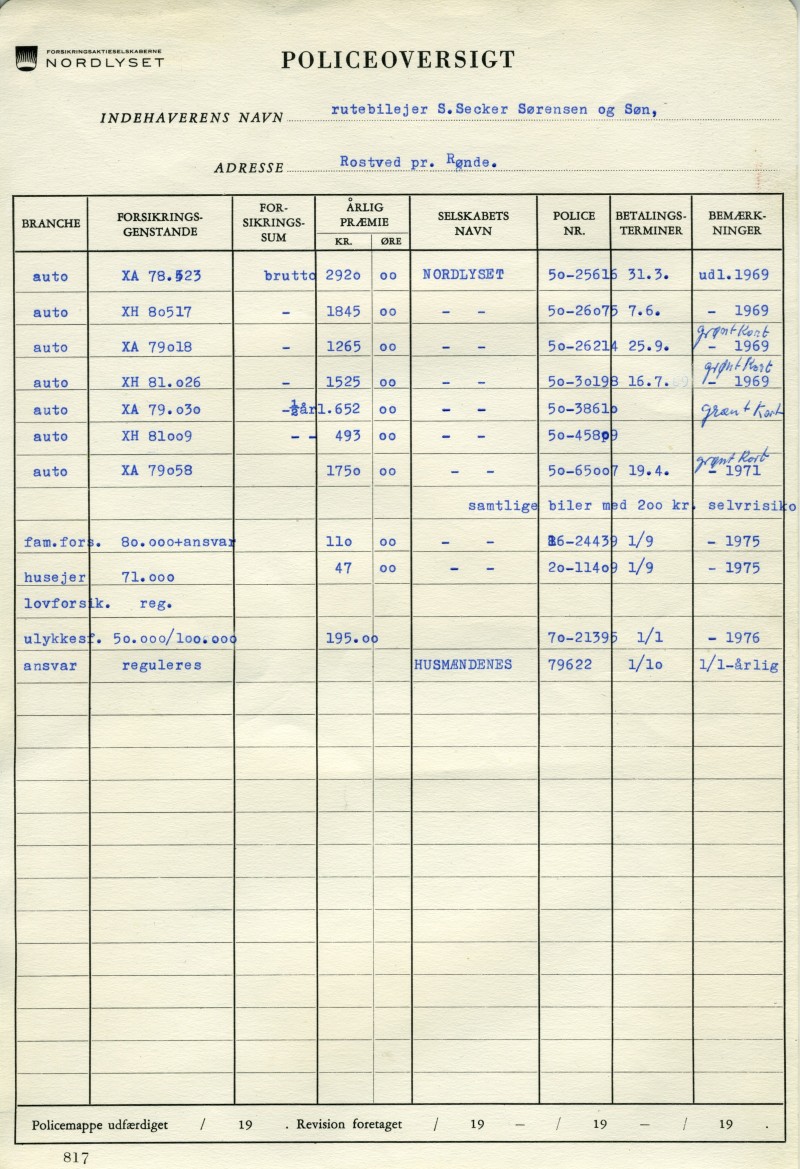 FORSIKRINGSAKTIESELSKABERNE
NORDLYSET
POLICEOVERSIGT
INDEHAVERENS NAVN rutebilejer S.Secker Sørensen og Søn,
ADRESSE Rostved pr. Rønde.
BRANCHE FORSIKRINGS-GENSTANDE FOR-SIKRINGS-SUM ÅRLIG PRÆMIE KR. ØRE SELSKABETS NAVN POLICE NR. BETALINGS-TERMINER BEMÆRK-NINGER
auto XA 78.523 brutto 2920 oo NORDLYSET 50-25616 31.3. udl.1969
auto XH 80517 - 1845 oo - - 50-26075 7.6. - 1969
grønt Kort
auto XA 79018 - 1265 oo - - 50-26214 25.9. - 1969
grønt Kort
auto XH 81.026 - 1525 oo - - 50-30198 16.7. - 1969
auto XA 79.030 -½år1.652 oo - - 50-38610 grønt Kort
auto XH 81009 - - 493 oo - - 50-45809
grønt Kort
auto XA 79058 1750 oo - - 50-65007 19.4. - 1971
samtlige biler med 200 kr. selvrisiko
fam.fors. 80.000+ansvar 110 oo - - 26-24439 1/9 - 1975
husejer 71.000 47 oo - - 20-11409 1/9 - 1975
lovforsik. reg.
ulykkesf. 50.000/100.000 195.oo 70-21395 1/1 - 1976
ansvar reguleres HUSMÆNDENES 79622 1/10 1/1-årlig
Policemappe udfærdiget / 19 . Revision foretaget / 19 — / 19 — / 19 .
817